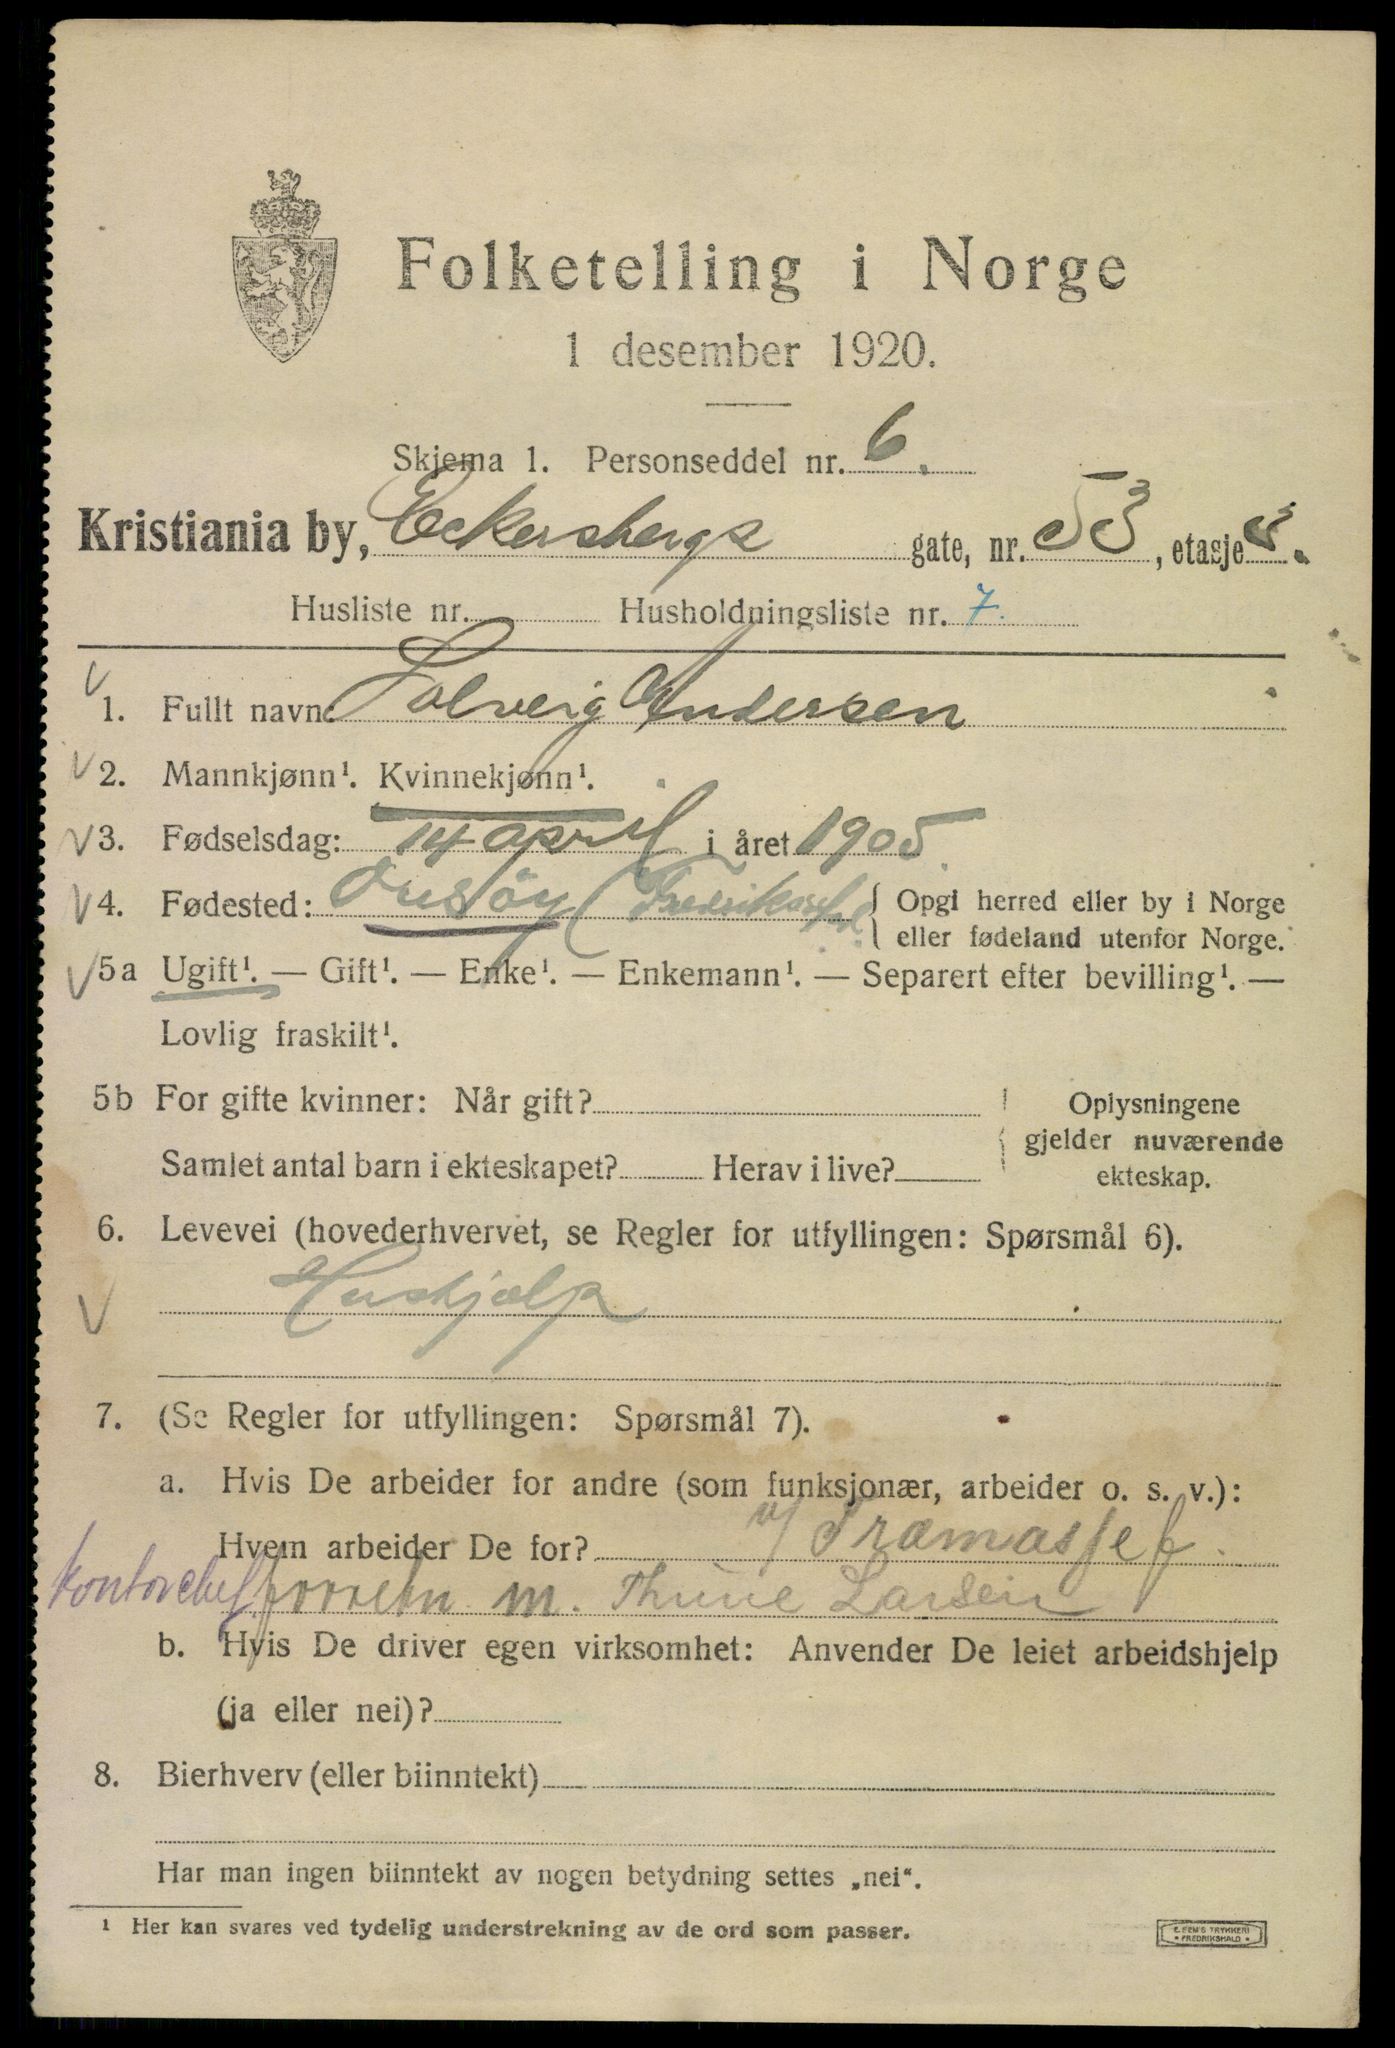 Folketelling i Norge
1 desember 1920.
Skjema 1. Personseddel nr. 6.
Kristiania by, Eckersbergs gate, nr. 53, etasje 3.
Husliste nr. Husholdningsliste nr. 7.
V 1. Fullt navn: Solveig Andersen
V 2. Mannkjønn¹. Kvinnekjønn¹.
V 3. Fødselsdag: 14 april i året 1905.
V 4. Fødested: Onsöy (Fredrikstad. { Opgi herred eller by i Norge
eller fødeland utenfor Norge.
V 5a Ugift¹. — Gift¹. — Enke¹. — Enkemann¹. — Separert efter bevilling¹. —
Lovlig fraskilt¹.
5b For gifte kvinner: Når gift? Oplysningene
gjelder nuværende
Samlet antal barn i ekteskapet? Herav i live? ekteskap.
6. Levevei (hovederhvervet, se Regler for utfyllingen: Spørsmål 6).
V Huskjælp
7. (Se Regler for utfyllingen: Spørsmål 7).
a. Hvis De arbeider for andre (som funksjonær, arbeider o. s. v.):
Hvem arbeider De for? v/ Tramassef.
kontorchef m. Thune Larsen
b. Hvis De driver egen virksomhet: Anvender De leiet arbeidshjelp
(ja eller nei)?
8. Bierhverv (eller biinntekt)
Har man ingen biinntekt av nogen betydning settes „nei“.
¹ Her kan svares ved tydelig understrekning av de ord som passer.
E. SEM'S TRYKKERI
• FREDRIKSHALD •